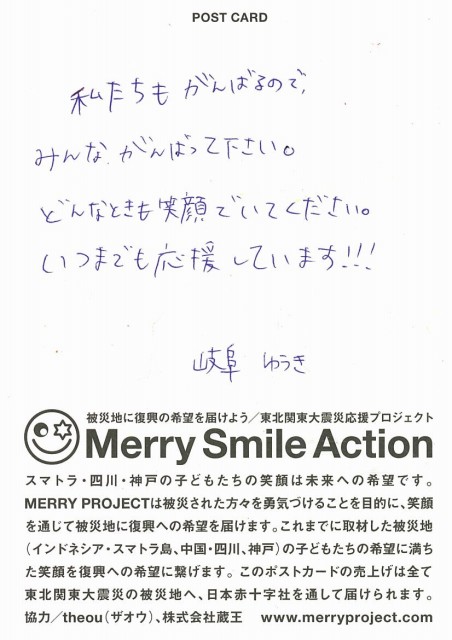 POST CARD
私たちもがんばるので、
みんながんばって下さい。
どんなときも笑顔でいてください。
いつまでも応援しています!!!
岐阜 ゆうき
被災地に復興の希望を届けよう／東北関東大震災応援プロジェクト
Merry Smile Action
スマトラ・四川・神戸の子どもたちの笑顔は未来への希望です。
MERRY PROJECTは被災された方々を勇気づけることを目的に、笑顔
を通じて被災地に復興への希望を届けます。これまでに取材した被災地
（インドネシア・スマトラ島、中国・四川、神戸）の子どもたちの希望に満ち
た笑顔を復興への希望に繋げます。このポストカードの売上げは全て
東北関東大震災の被災地へ、日本赤十字社を通して届けられます。
協力／theou（ザオウ）、株式会社蔵王 www.merryproject.com